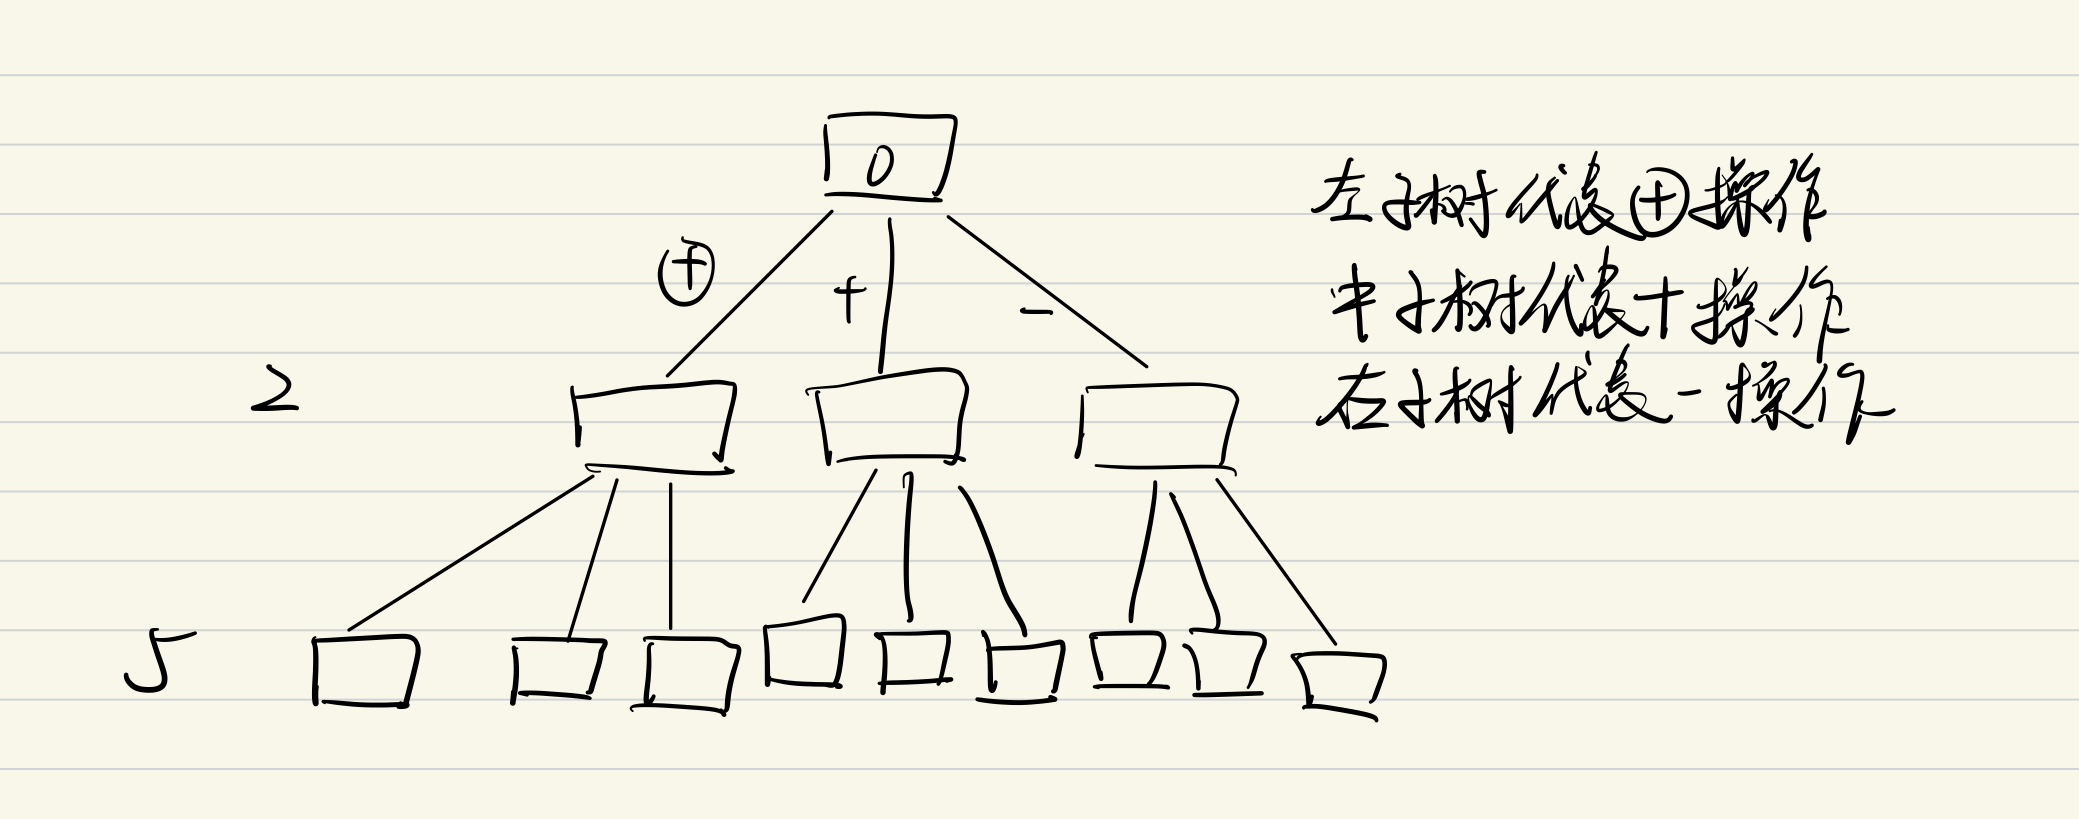 0
左子树代表⊕操作
⊕
+
-
中子树代表+操作
2
右子树代表-操作
5